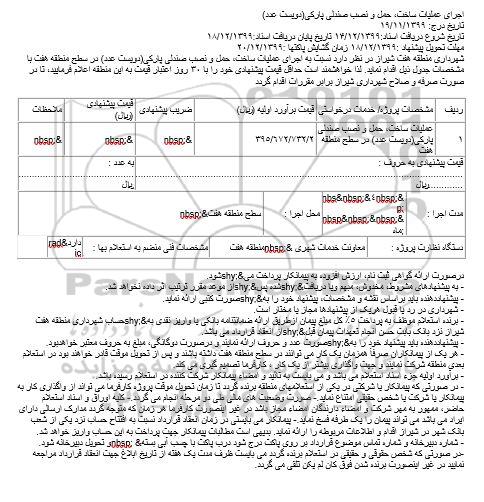 اجرای عملیات ساخت، حمل و نصب صندلی پارکی(دویست عدد)
تاریخ درج: ۱۹/۱۱/۱۳۹۹
تاریخ شروع دریافت اسناد:۱۴/۱۲/۱۳۹۹ تاریخ پایان دریافت اسناد:۱۸/۱۲/۱۳۹۹
مهلت تحویل پیشنهاد :۱۸/۱۲/۱۳۹۹ زمان گشایش پاکتها :۲۰/۱۲/۱۳۹۹
شهرداری منطقه هفت شیراز در نظر دارد نسبت به اجرای عملیات ساخت، حمل و نصب صندلی پارکی(دویست عدد) در سطح منطقه هفت با
مشخصات جدول ذیل اقدام نماید. لذا خواهشمند است حداقل قیمت پیشنهادی خود را با ۳۰ روز اعتبار قیمت به این منطقه اعلام فرمایید، تا در
صورت صرفه و صلاح شهرداری شیراز برابر مقررات اقدام گردد
ردیف مشخصات پروژه/ خدمات درخواستی قیمت برآورد اولیه (ریال) ضریب پیشنهادی قیمت پیشنهادی (ریال) ملاحظات
۱ عملیات ساخت، حمل و نصب صندلی پارکی(دویست عدد) در سطح منطقه هفت ۳۹۵/۶۷۲/۷۳۲/۲ &nbsp; &nbsp; &nbsp;
قیمت پیشنهادی به حروف : به عدد :
ریال ریال
مدت اجرا : &nbsp;٤&nbsp; ماه; محل اجرا : &nbsp;&nbsp;&nbsp; سطح منطقه هفت&nbsp;
دستگاه نظارت پروژه : معاونت خدمات شهری &nbsp;منطقه هفت مشخصات فنی منضم به استعلام بها : دارد&radic
درصورت ارائه گواهی ثبت نام، ارزش افزوده، به پیمانکار پرداخت می&shy;شود.
- به پیشنهادهای مشروط مخدوش، مبهم ویا دریافت&shy;شده پس&shy;از موعد مقرر ترتیب اثر داده نخواهد شد.
- پیشنهاددهنده باید براساس نقشه و مشخصات، پیشنهاد خود را به&shy;صورت کتبی ارائه نماید.
- شهرداری در رد یا قبول هریک از پیشنهادها مجاز یا مختار است.
- برنده استعلام موظف به پرداخت ۵٪ کل مبلغ پیمان ازطریق ارائه ضمانتنامه بانکی یا واریز نقدی به&shy;حساب شهرداری منطقه هفت
شیراز نزد بانک بابت حسن انجام تعهدات پیمان قبل&shy;از انعقاد قرارداد می باشد.
- پیشنهاددهنده باید پیشنهاد خود را به&shy;صورت عدد و حروف ارائه نمایند و درصورت دوگانگی، مبلغ به حروف معتبر خواهدبود.
- هر یک از پیمانکاران صرفاً همزمان یک کار می توانند در سطح منطقه هفت داشته باشند و پس از تحویل موقت قادر خواهند بود در استعلام
بعدی منطقه شرکت نمایند و جهت واگذاری بیشتر از یک کار ، کارفرما تصمیم گیری می کند.
- برآورد اولیه جزء اسناد استعلام می باشد و می بایست به تائید و امضاء پیمانکار شرکت کننده در استعلام رسیده باشد.
- در صورتی که پیمانکار یا شرکتی در یکی از استعلامهای منطقه برنده گردد تا زمان تحویل موقت پروژه کارفرما می تواند از واگذاری کار به
پیمانکار یا شرکت یا شخص حقیقی امتناع نماید.- صورت وضعیت های مالی طی دو مرحله انجام می گردد.- کلیه اوراق و اسناد استعلام
حاضر، ممهور به مهر شرکت و امضاء دارندگان امضاء مجاز باشد در غیر اینصورت کارفرما هر زمان که متوجه گردد مدارک ارسالی دارای
ایراد می باشد می تواند پیمان را یک طرفه فسخ نماید. - پیمانکار می بایستی در زمان انعقاد قرارداد نسبت به افتتاح حساب نزد یکی از شعب
بانک شهر در شیراز اقدام و اطلاعات مربوطه را ارائه نماید. بدیهی است مطالبات پیمانکار جهت پرداخت به این حساب واریز خواهد شد.
- شماره دبیرخانه و شماره تماس موضوع قرارداد بر روی پاکت درج شود درب پاکت با چسب آبی بسته&nbsp; وتحویل دبیرخانه شود.
-در صورتی که شخص حقوقی و حقیقی در استعلام برنده گردد می بایست ظرف مدت یک هفته از تاریخ ابلاغ جهت انعقاد قرارداد مراجعه
نمایید در غیر اینصورت برنده شدن فوق کان لم یکن تلقی می گردد.